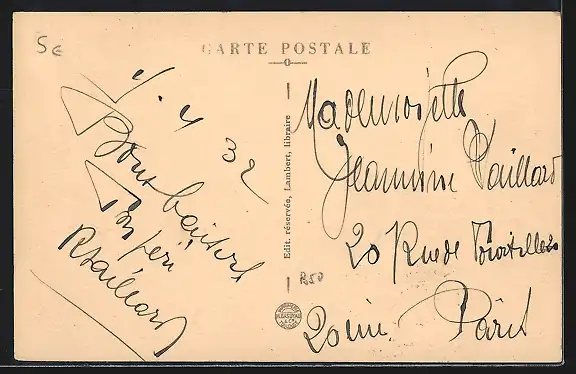 5€
CARTE POSTALE
1/. 4 32
Bons baisers
Ton père
R Vaillard
Edit. réservée, Lambert, libraire
R50
Mademoiselle
Jeannine Vaillard
20 Rue de Tourtille
20ème. Paris